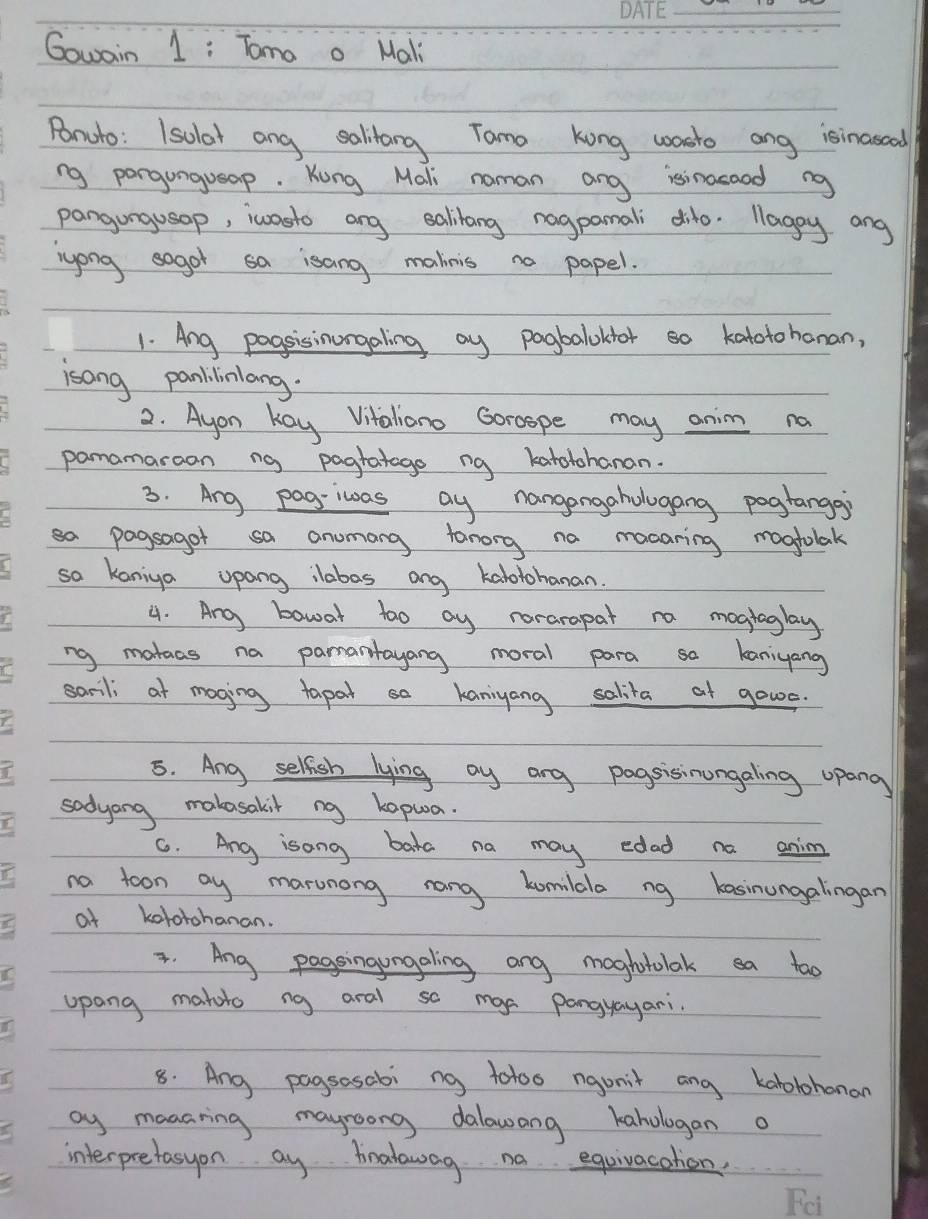 DATE
Gawain 1 : Tama o Mali
Panuto: Isulat ang salitang Tama kung wasto ang isinasaad
ng pangungusap. Kung Mali naman ang isinasaad ng
pangungusap, iwasto ang salitang nagpamali dito. Ilagay ang
iyong sagot sa isang malinis na papel.
1. Ang pagsisinungaling ay pagbaluktot sa katotohanan,
isang panlilinlang.
2. Ayon kay Vitaliano Gorospe may anim na
pamamaraan ng pagtatago ng katotohanan.
3. Ang pag-iwas ay nangangahulugang pagtanggi
sa pagsagot sa anumang tanong na maaaring magtulak
sa kaniya upang ilabas ang katotohanan.
4. Ang bawat tao ay nararapat na magtaglay
ng mataas na pamantayang moral para sa kaniyang
sarili at maging tapat sa kaniyang salita at gawa.
5. Ang selfish lying ay ang pagsisinungaling upang
sadyang makasakit ng kapwa.
6. Ang isang bata na may edad na anim
na taon ay marunong nang kumilala ng kasinungalingan
at katotohanan.
7. Ang pagsingungaling ang magtutulak sa tao
upang matuto ng aral sa mga pangyayari.
8. Ang pagsasabi ng totoo ngunit ang katotohanan
ay maaaring mayroong dalawang kahulugan o
interpretasyon ay tinatawag na equivacation.
Fci